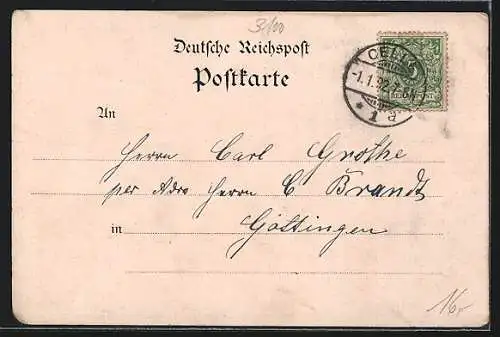 3/00
Deutsche Reichspost
Postkarte
CELLE
1.1.92.7-8N
* 1 a
An
Herrn Carl Grothe
per Adr. Herrn C. Brandt
in Göttingen
16,-